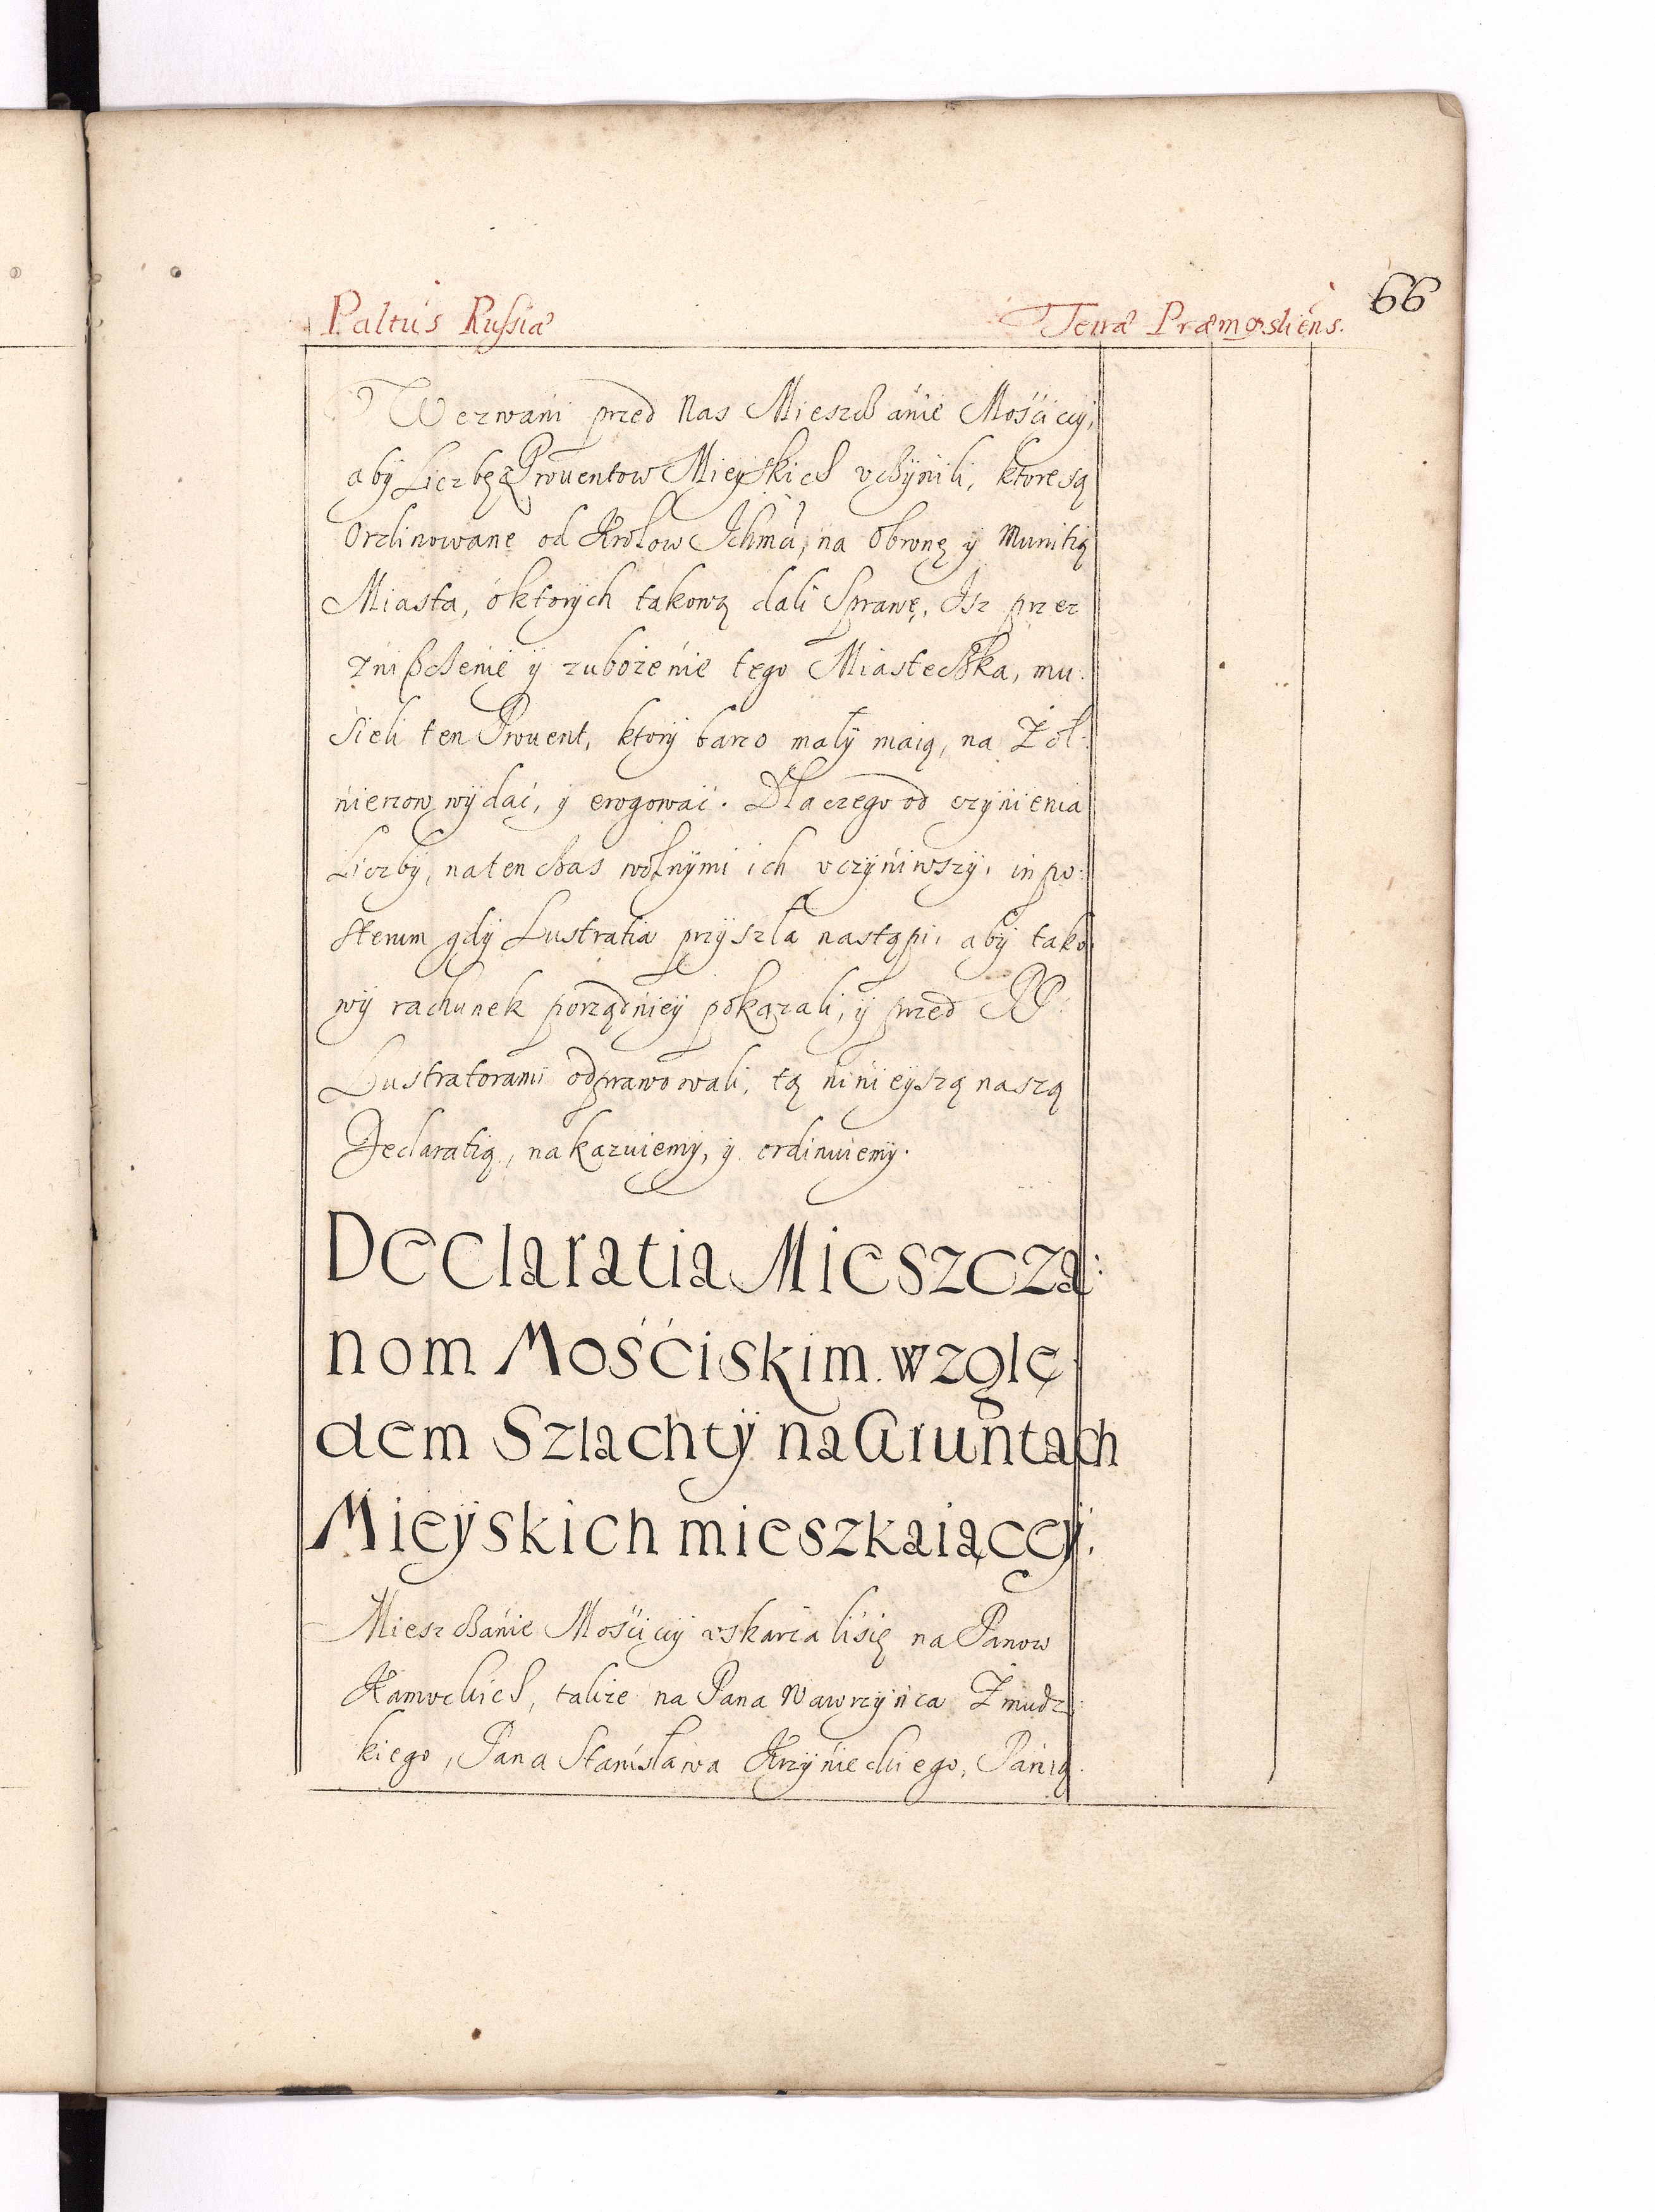 Paltus Russiæ
Terræ Præmysliens.
66
Wezwani przed Nas Mieszczanie Mościccy,
aby Liczbę z Prouentow Mieyskich vczynili, ktore są
Ordinowane od Krolow Ichmci, na Obronę y Munitią
Miasta, o ktorych takową dali Sprawę, Isz przez
zniszczenie y zubożenie tego Miasteczka, mu:
sieli ten Prouent, ktory barzo mały maią, na Żoł:
nierzow wydać, y erogować. Dla czego od vczynienia
Liczby, na ten czas wolnymi ich vczyniwszy, in po:
sterum gdy Lustratia przyszła nastąpi, aby tako
wy rachunek porządniey pokazali, y przed PP.
Lustratorami odprawowali, tą ninieyszą naszą
Declaratią, nakazuiemy, y ordinuiemy.
Declaratia Mieszcza:
nom Mościskim wzglę
dem Szlachty na Gruntach
Mieyskich mieszkaiącey.
Mieszczanie Mościccy vskarzali się na Panow
także na Pana Wawrzyńca Żmudz:
kiego, Pana Stanisława Krzynieckiego, Panią